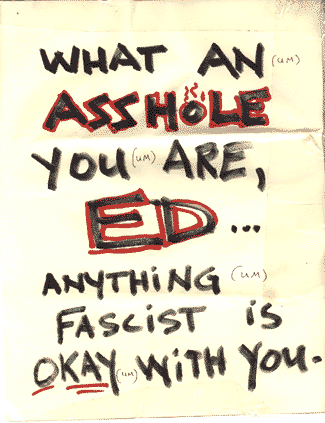 WHAT AN (UM)
ASSHOLE
YOU (UM) ARE,
ED...
ANYTHING (UM)
FASCIST IS
OKAY (UM) WITH YOU.